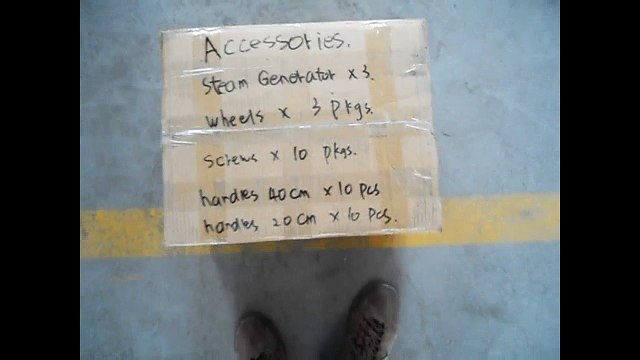 Accessories.
Steam Generator x 3.
wheels x 3 pkgs.
screws x 10 pkgs.
handles 40cm x 10 pcs
handles 20cm x 10 pcs.